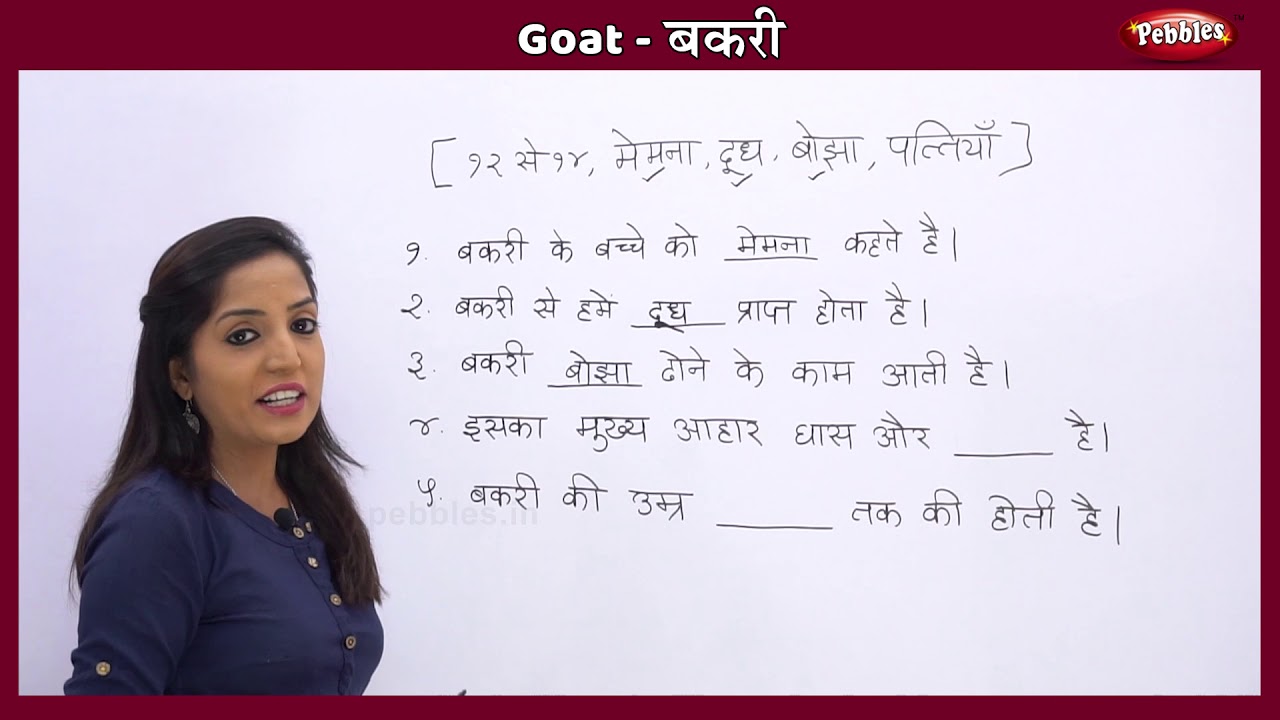 Goat - बकरी
Pebbles™
[ १२ से १४, मेमना, दूध, बोझा, पत्तियाँ ]
१. बकरी के बच्चे को मेमना कहते है।
२. बकरी से हमें दूध प्राप्त होता है।
३. बकरी बोझा ढोने के काम आती है।
४. इसका मुख्य आहार घास और _____ है।
५. बकरी की उम्र _____ तक की होती है।
pebbles.in